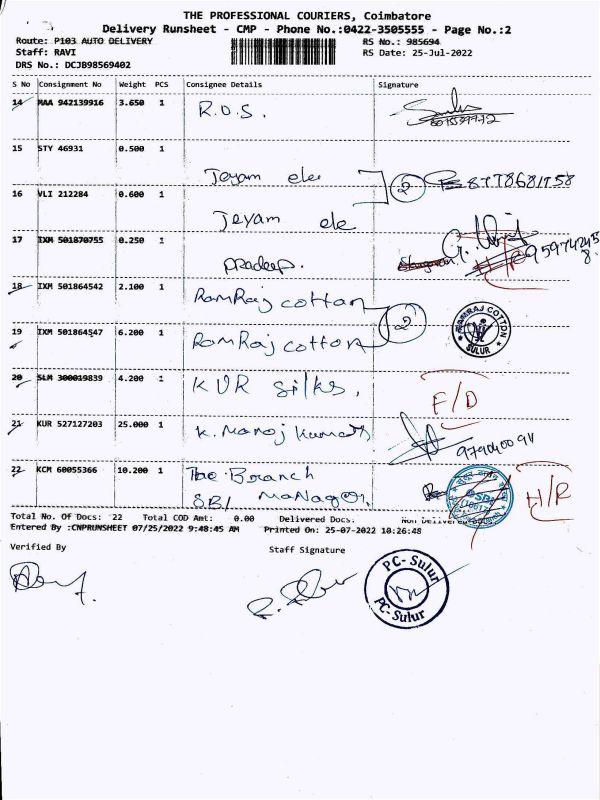 THE PROFESSIONAL COURIERS, Coimbatore
Delivery Runsheet - CMP - Phone No.:0422-3505555 - Page No.:2
Route: P103 AUTO DELIVERY RS No.: 985694
Staff: RAVI RS Date: 25-Jul-2022
DRS No.: DCJB98569402
S No Consignment No Weight PCS Consignee Details Signature
14 MAA 942139916 3.650 1 R.O.S.
15 STY 46931 0.500 1 Jeyam ele 2 8778681758
16 VLI 212284 0.600 1 Jeyam ele
17 IXM 501870755 0.250 1 pradeep.
18 IXM 501864542 2.100 1 RamRaj cotton 2
19 IXM 501864547 6.200 1 RamRaj cotton RAMRAJ COTTON SULUR
20 SLM 300019839 4.200 1 KUR Silks, F/D
21 KUR 527127203 25.000 1 K. Manoj Kumar
22 KCM 60055366 10.200 1 The Branch
SBI Manager. SBI H/R
Total No. Of Docs: 22 Total COD Amt: 0.00 Delivered Docs. Non Delivered
Entered By :CNPRUNSHEET 07/25/2022 9:48:45 AM Printed On: 25-07-2022 10:26:48
Verified By Staff Signature
PC-Sulur
PC-Sulur